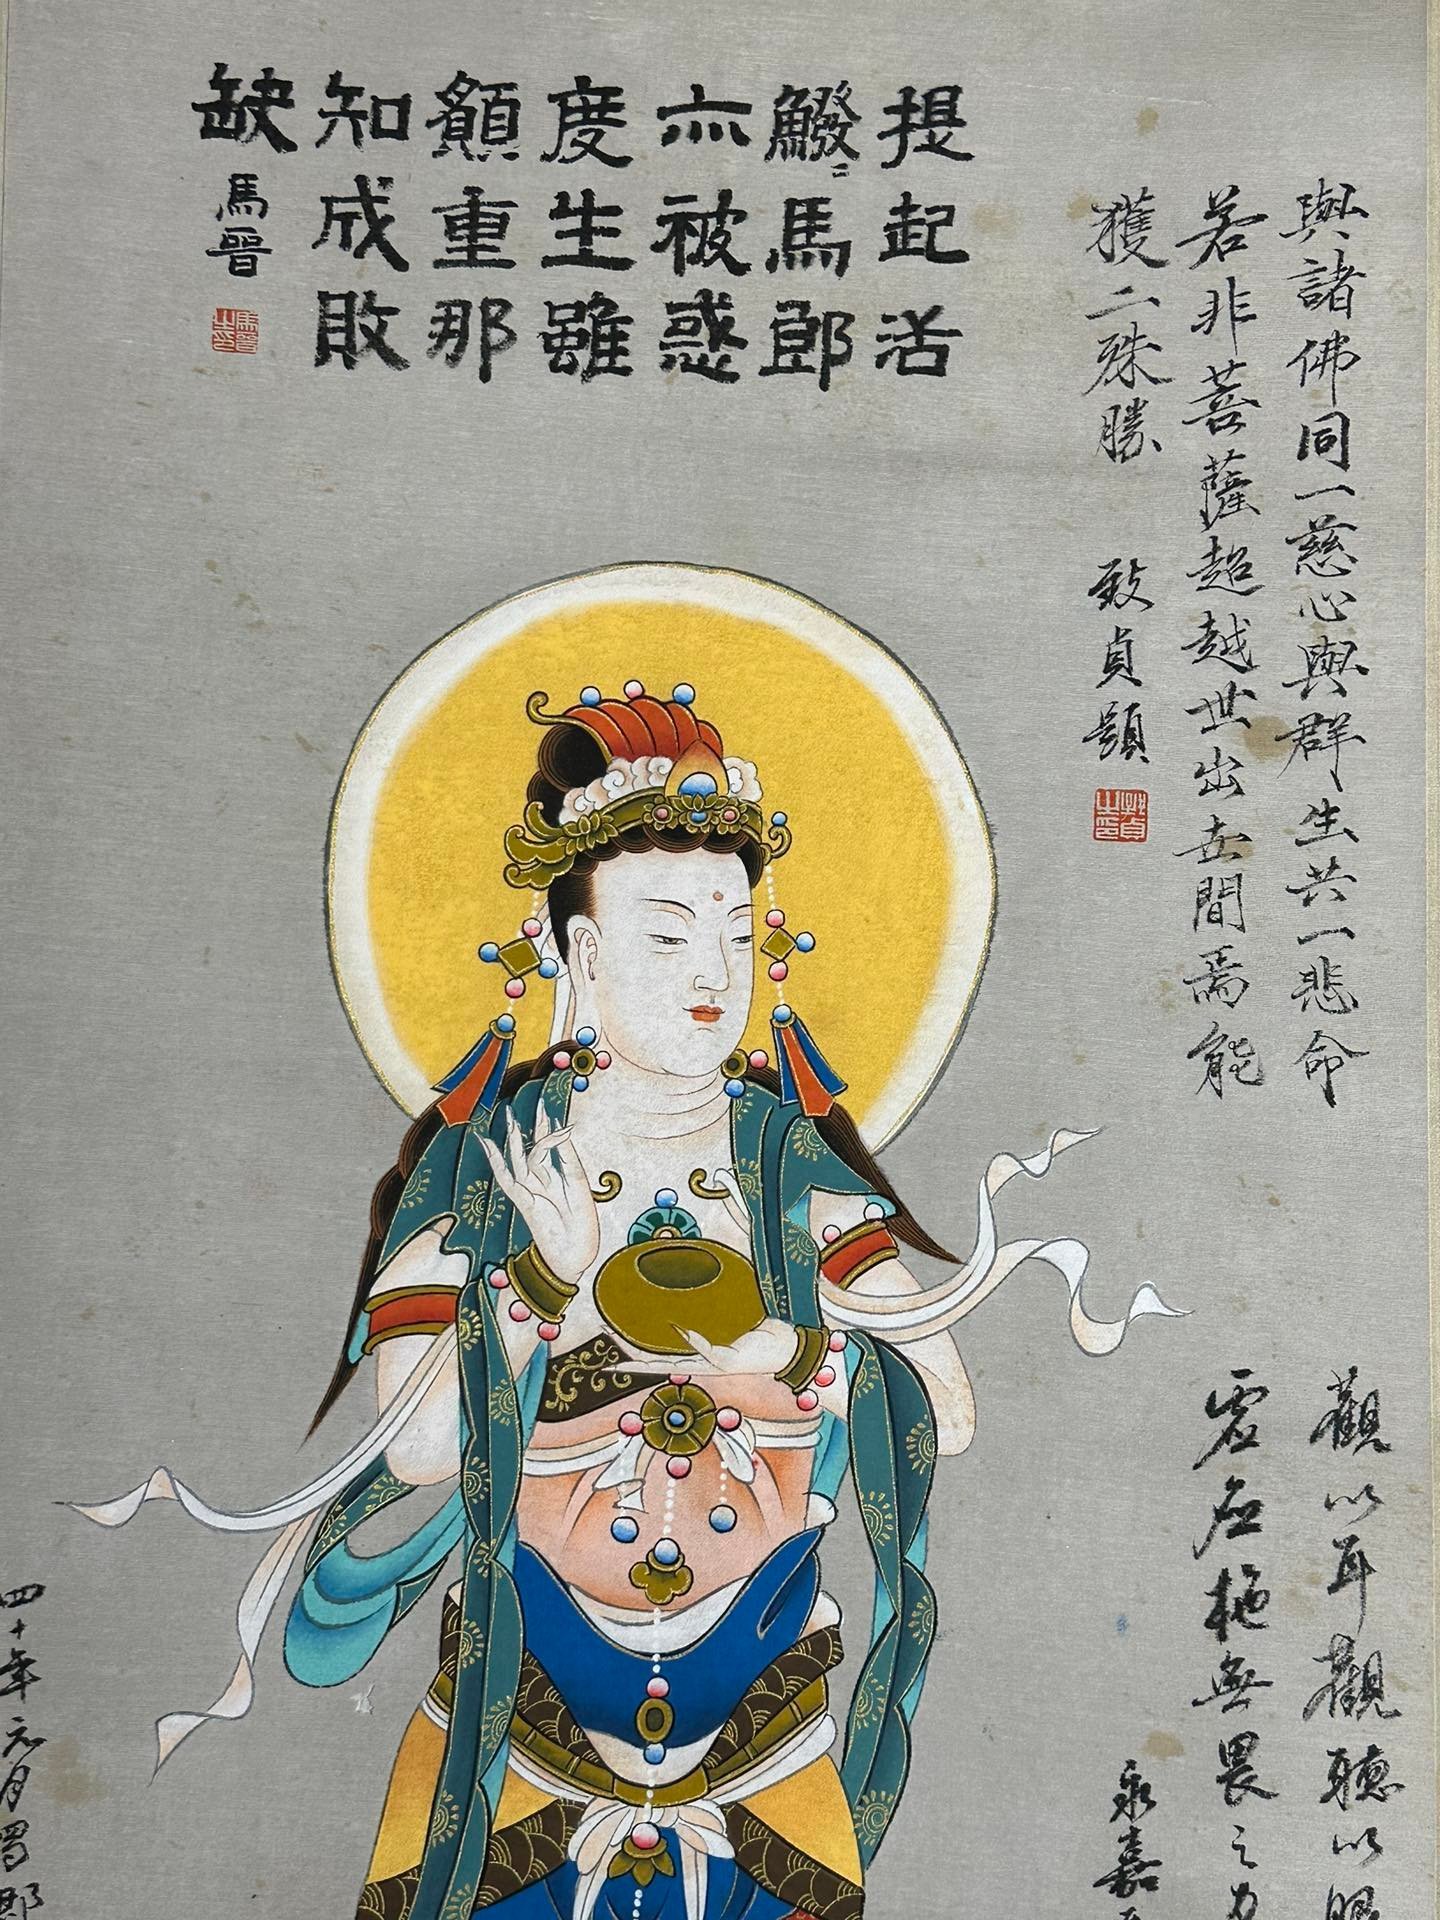 與諸佛同一慈心與群生共一悲命
若非菩薩超越世出世間焉能
獲二殊勝
致貞題
提起活
鱍=馬郎
亦被惑
度生雖
願重那
知成敗
缺
馬晉
馬晉之印
觀以耳觀聽以眼
處應施無畏之力
永嘉
四十年元月蜀郡